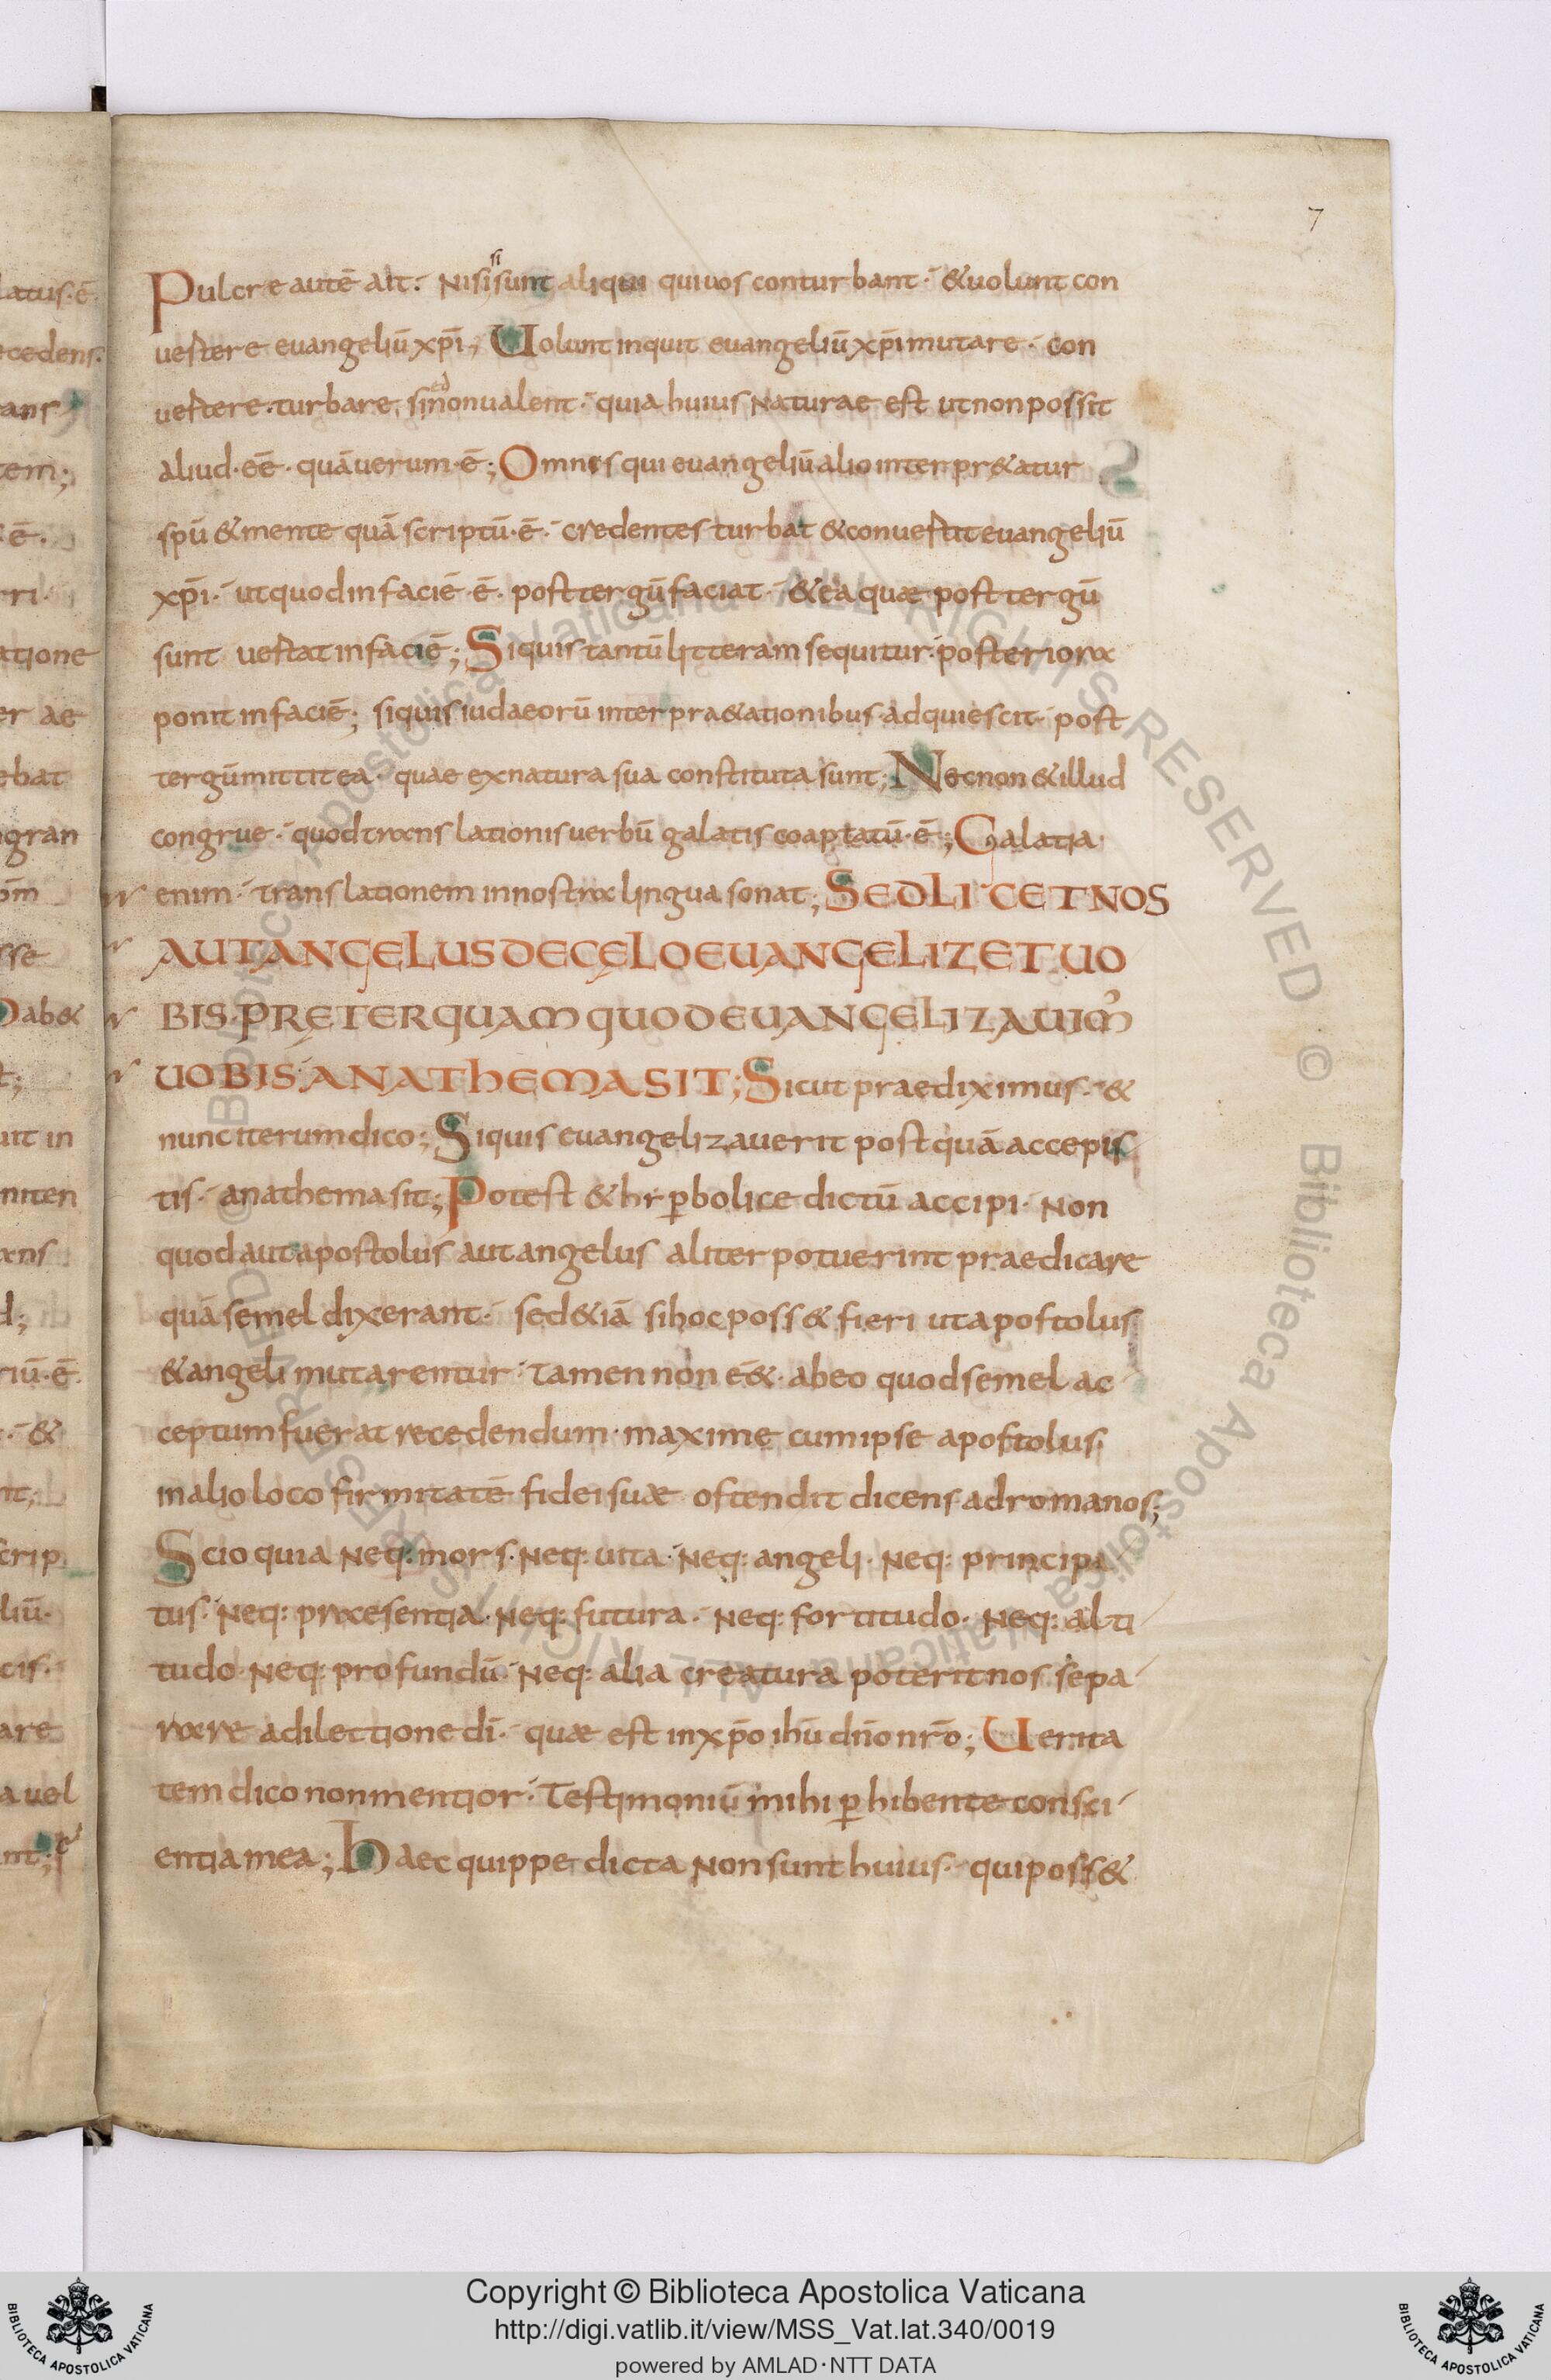 7
Pulcre autē ait· Nisi si sunt aliqui qui uos conturbant· & uolunt con
uertere euangeliū xp̄i; Uolunt inquit euangeliū xp̄i mutare· con
uertere· turbare, sed non ualent· quia huius Naturae est ut non possit
aliud· eē· quā uerum· ē; Omnes qui euangeliū alio interpr&atur
spū & mente quā scriptū· ē· credentes turbat & conuertit euangeliū
xp̄i· ut quod in faciē· ē· post tergū faciat· & ea quae post tergū
sunt uertat in faciē; Si quis tantū litteram sequitur· posteriora
ponit in faciē; si quis iudaeorū interpra&ationibus adquiescit· post
tergū mittit ea· quae ex natura sua constituta sunt; Necnon & illud
congrue· quod translationis uerbū galatis coaptatū· ē; Galatia
enim· translationem in nostra lingua sonat; SED LICET NOS
AUT ANGELUS DE CELO EUANGELIZET UO
BIS· PRETERQUAM QUOD EUANGELIZAUIM᾽
UOBIS· ANATHEMA SIT; Sicut praediximus· &
nunc iterum dico; Si quis euangelizauerit postquā accepis
tis· anathema sit; Potest & hyp̱bolice dictū accipi· Non
quod aut apostolus aut angelus aliter potuerint praedicare
quā semel dixerant· sed & iā si hoc poss& fieri ut apostolus
& angeli mutarentur· tamen non e&· ab eo quod semel ac
ceptum fuerat recedendum· maxime cum ipse apostolus
in alio loco firmitatē fidei suae ostendit dicens ad romanos;
Scio quia Neq: mors· Neq: uita· Neq: angeli· Neq: principa
tus· Neq: praesentia· Neq: futura· Neq: fortitudo· Neq: alti
tudo· Neq: profundū· Neq: alia creatura poterit nos sepa
rare a dilectione dī· quae est in xp̄o ihū dn̄o nr̄o; Uerita
tem dico non mentior· Testimoniū mihi p̱hibente consci
entia mea; Haec quippe dicta Non sunt huius· qui poss&
Copyright © Biblioteca Apostolica Vaticana
http://digi.vatlib.it/view/MSS_Vat.lat.340/0019
powered by AMLAD·NTT DATA